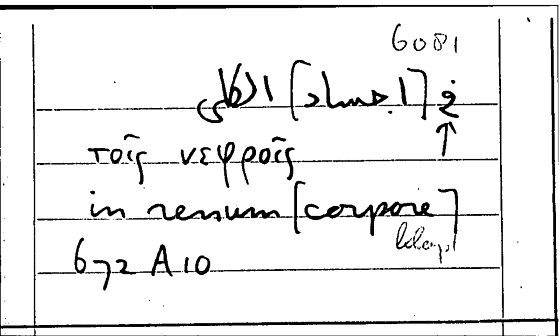 6081
في [اجساد] الكلى
τοῖς νεφροῖς
in renum [corpore]
672 A 10